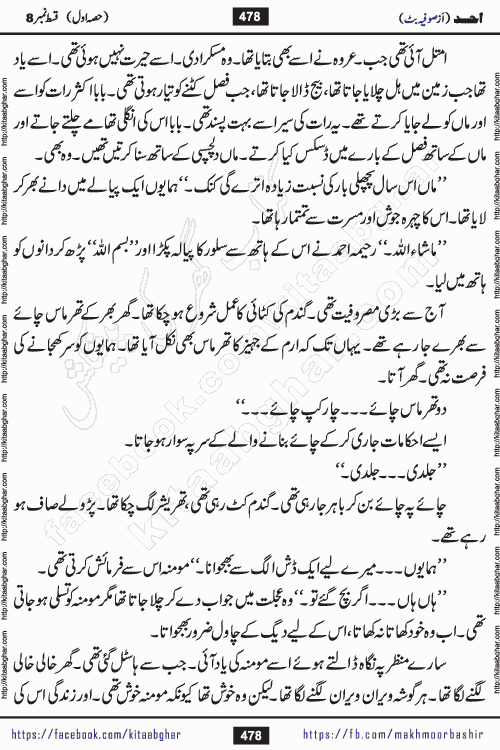 احسد (از صوفیہ بٹ) 478 (حصہ اول) قسط نمبر 8
امتل آئی تھی جب۔ عروہ نے اسے بھی بتایا تھا۔ وہ مسکرا دی۔ اسے حیرت نہیں ہوئی تھی۔ اسے یاد
تھا جب زمین میں ہل چلایا جاتا تھا، بیج ڈالا جاتا تھا، جب فصل کٹنے کو تیار ہوتی تھی۔ بابا اکثر رات کو اسے
اور ماں کو لے جایا کرتے تھے۔ یہ رات کی سیر اسے بہت پسند تھی۔ بابا اس کی انگلی تھامے چلتے جاتے اور
ماں کے ساتھ فصل کے بارے میں ڈسکس کیا کرتے۔ ماں دلچسپی کے ساتھ سنا کرتیں تھیں۔ وہ بھی۔
”ماں اس سال پچھلی بار کی نسبت زیادہ اترے گی کنک۔“ ہمایوں ایک پیالے میں دانے بھر کر
لایا تھا۔ اس کا چہرہ جوش اور مسرت سے تمتمار ہا تھا۔
”ماشاء اللہ۔“ رحیمہ احمد نے اس کے ہاتھ سے سلور کا پیالہ پکڑا اور ”بسم اللہ“ پڑھ کر دانوں کو
ہاتھ میں لیا۔
آج سے بڑی مصروفیت تھی۔ گندم کی کٹائی کا عمل شروع ہو چکا تھا۔ گھر بھر کے تھرماس چائے
سے بھرے جا رہے تھے۔ یہاں تک کہ ارم کے جہیز کا تھرماس بھی نکل آیا تھا۔ ہمایوں کو سر کھجانے کی
فرصت نہ تھی۔ گھر آتا۔
دو تھرماس چائے۔۔۔ چار کپ چائے۔۔۔“
ایسے احکامات جاری کر کے چائے بنانے والے کے سر پہ سوار ہو جاتا۔
”جلدی۔۔۔ جلدی۔“
چائے پہ چائے بن کر باہر جا رہی تھی۔ گندم کٹ رہی تھی، تھریشر لگ چکا تھا۔ پڑولے صاف ہو
رہے تھے۔
”ہمایوں۔۔۔ میرے لیے ایک ڈش الگ سے بھجوانا۔“ مومنہ اس سے فرمائش کرتی تھی۔
”ہاں ہاں۔۔۔ اگر بچ گئے تو۔“ وہ عجلت میں جواب دے کر چلا جاتا تھا مگر مومنہ کو تسلی ہو جاتی
تھی۔ اب وہ خود کھاتا نہ کھاتا، اس کے لیے دیگ کے چاول ضرور بھجواتا۔
سارے منظر پہ نگاہ ڈالتے ہوئے اسے مومنہ کی یاد آئی۔ جب سے ہاسٹل گئی تھی۔ گھر خالی خالی
لگنے لگا تھا۔ ہر گوشہ ویران ویران لگنے لگا تھا۔ لیکن وہ خوش تھا کیونکہ مومنہ خوش تھی۔ اور زندگی اس کی
https://facebook.com/kitaabghar 478 https://fb.com/makhmoorbashir
http://kitaabghar.com